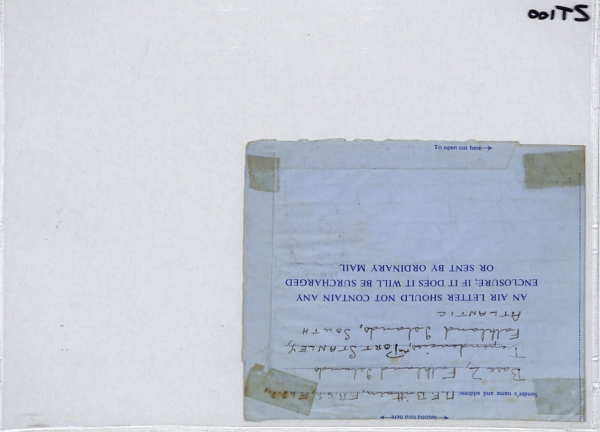 ←Second fold here→
Sender's name and address: Brittain,
Base Z, Falkland Islands
Dependencies, PORT STANLEY,
Falkland Islands, SOUTH
ATLANTIC
AN AIR LETTER SHOULD NOT CONTAIN ANY
ENCLOSURE; IF IT DOES IT WILL BE SURCHARGED
OR SENT BY ORDINARY MAIL
To open cut here→